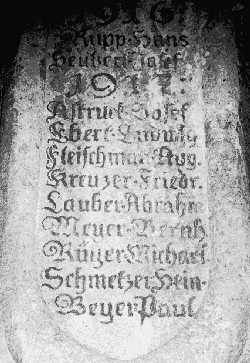 1916:
Rupp·Hans
Heubert·Josef
1917:
Astruck·Josef
Ebert·Ludwig
Fleischman·Aug.
Kreuzer·Friedr.
Lauber·Abraham
Meyer·Bernh.
Rüger·Michael
Schmetzer·Hein·
Beyer·Paul